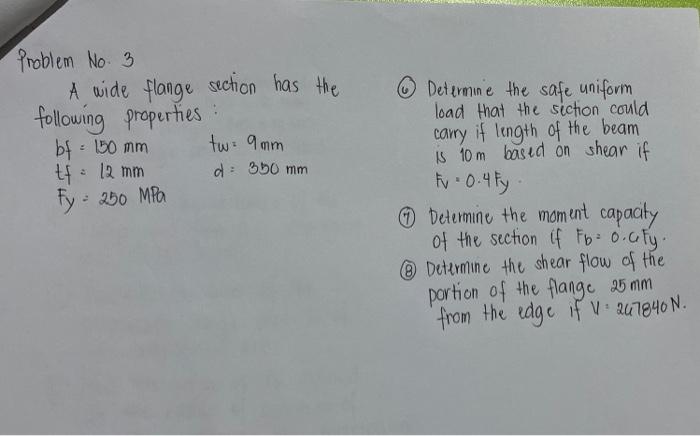 Problem No. 3
A wide flange section has the
following properties :
bf = 150 mm tw = 9 mm
tf = 12 mm d = 350 mm
Fy = 250 MPa
⑥ Determine the safe uniform
load that the section could
carry if length of the beam
is 10 m based on shear if
Fv = 0.4 Fy.
⑦ Determine the moment capacity
of the section if Fb = 0.6 Fy.
⑧ Determine the shear flow of the
portion of the flange 25 mm
from the edge if V = 267840 N.